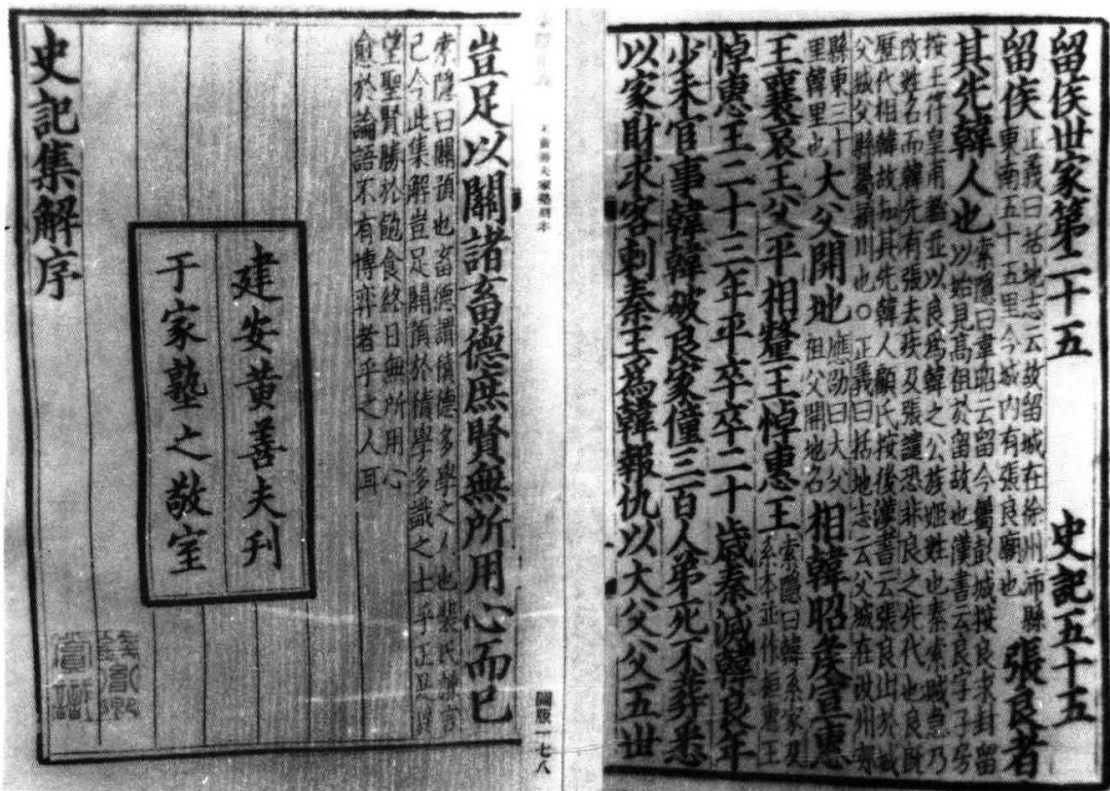 留侯世家第二十五 史記五十五
留侯 正義曰括地志云故留城在徐州沛縣東南五十五里今城内有張良廟也 張良者
其先韓人也 索隱曰韋昭云留今屬彭城按良求封留以始見高祖於留故也漢書云良字子房
按王符皇甫謐並以良爲韓之公族姬姓也秦索賊急乃
改姓名而韓先有張去疾及張譴恐非良之先代也良既
歷代相韓故知其先韓人顧氏按後漢書云張良出於城
父城父縣屬潁川也○正義曰括地志云父城在汝州郟
縣東三十里韓里也 大父開地 應劭曰大父祖父開地名 相韓昭侯宣惠
王襄哀王父平相釐王悼惠王 索隱曰韓系家及系本並作桓惠王
悼惠王二十三年平卒卒二十歲秦滅韓良年
少未官事韓韓破良家僮三百人弟死不葬悉
以家財求客刺秦王爲韓報仇以大父父五世
圖版一七八
豈足以關諸畜德庶賢無所用心而已
索隱曰關預也畜德謂積德多學之人也裴氏謙言
己今此集解豈足關預於積學多識之士乎正是冀
望聖賢勝於飽食終日無所用心
愈於論語不有博弈者乎之人耳
建安黄善夫刊
于家塾之敬室
史記集解序